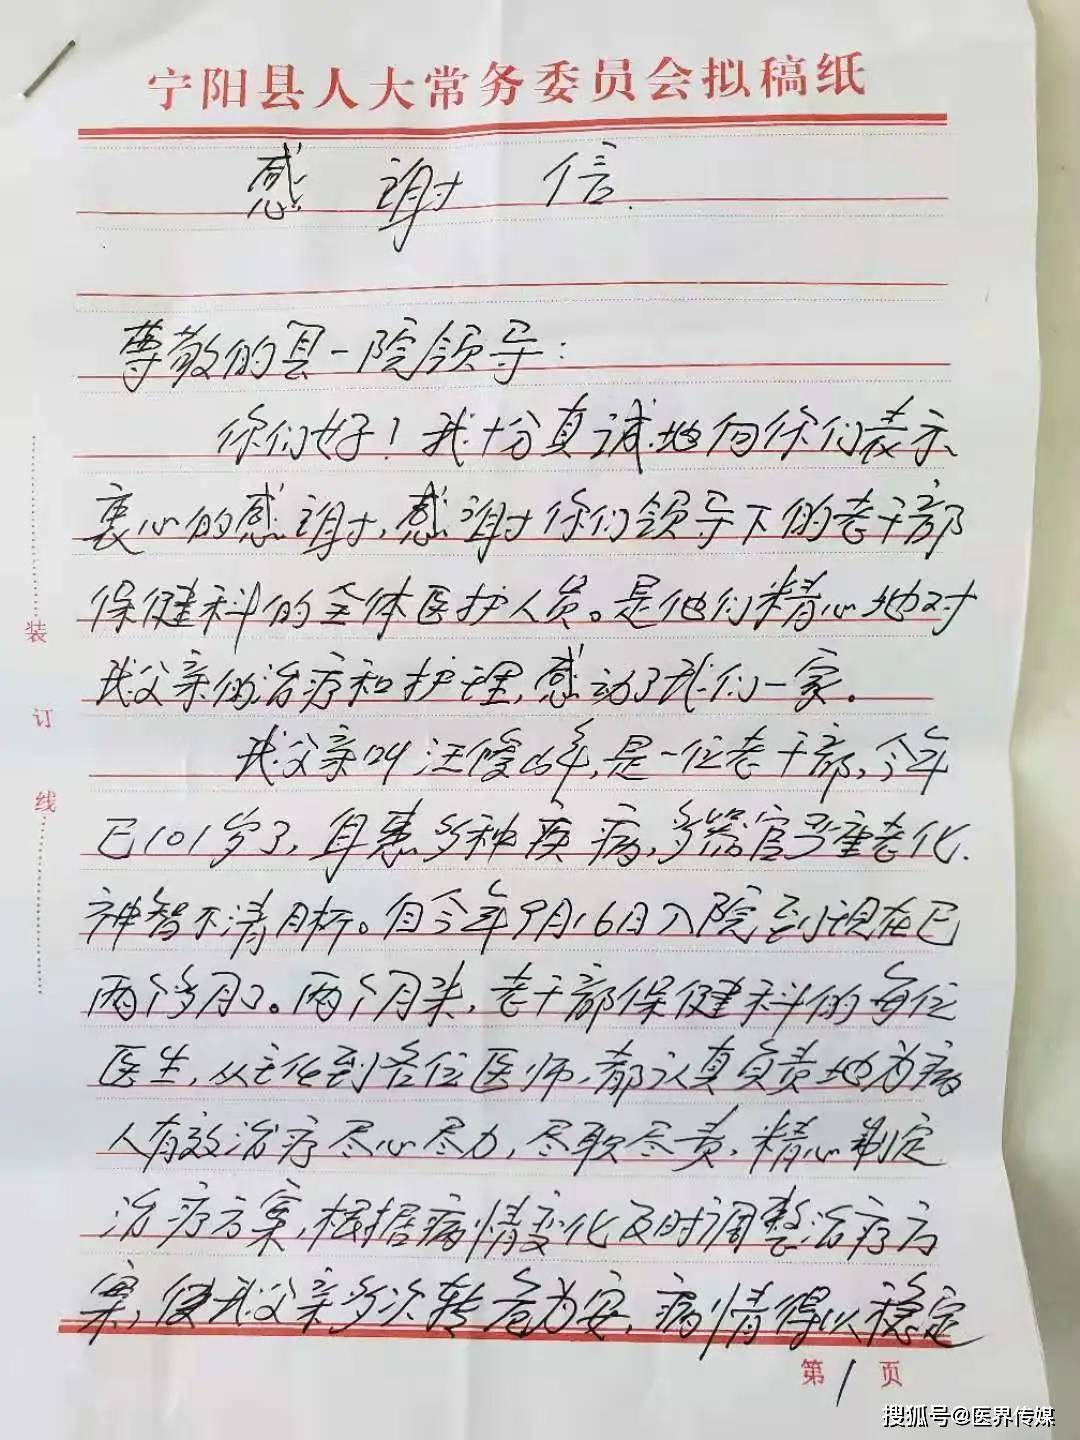 宁阳县人大常务委员会拟稿纸
感谢信
尊敬的县一院领导:
你们好!我十分真诚地向你们表示
衷心的感谢,感谢你们领导下的老干部
保健科的全体医护人员。是他们精心地对
我父亲的治疗和护理,感动了我们一家。
我父亲叫汪俊,是一位老干部,今年
已101岁了,身患多种疾病,多器官严重老化、
神智不清晰。自今年9月16日入院到现在已
两个多月了。两个月来,老干部保健科的每位
医生,从主任到各位医师,都认真负责地为病
人有效治疗尽心尽力,尽职尽责,精心制定
治疗方案,根据病情变化及时调整治疗方
案,使我父亲多次转危为安,病情得以稳定
装
订
线
第1页
搜狐号@医界传媒